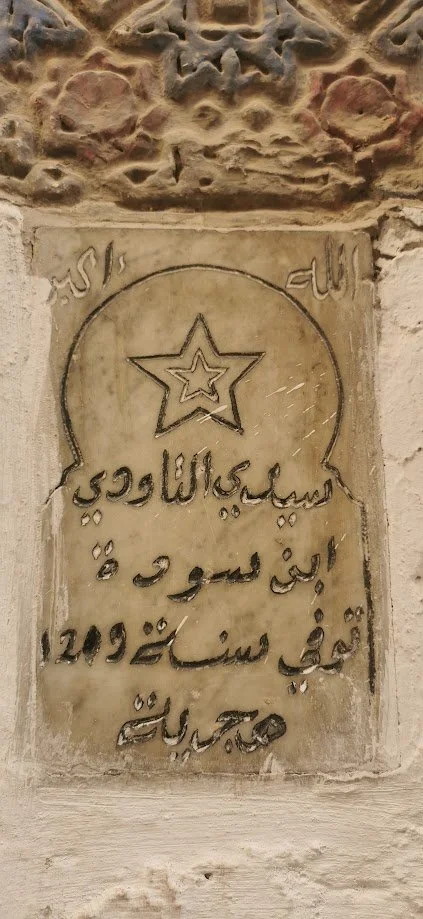 الله أكبر
سيدي التاودي
ابن سودة
توفي سنة 1209
هجرية